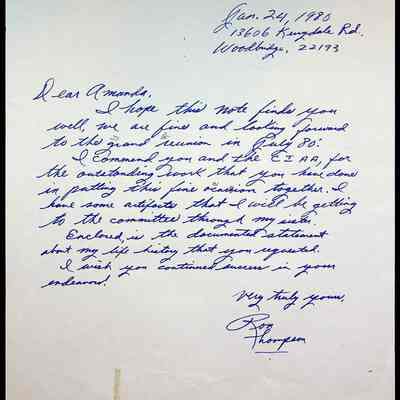 Jan. 24, 1980
13606 Kingdale Rd.
Woodbridge, 22193
Dear Amanda,
I hope this note finds you
well, we are fine and looking forward
to the grand reunion in July 80.
I commend you and the EIAA, for
the outstanding work that you have done
in putting this fine occasion together. I
have some artifacts that I will be getting
to the committee through my sister.
Enclosed, is the documented statement
about my life history that you requested.
I wish you continued success in your
endeavor!
Very truly yours,
Ron
Thompson